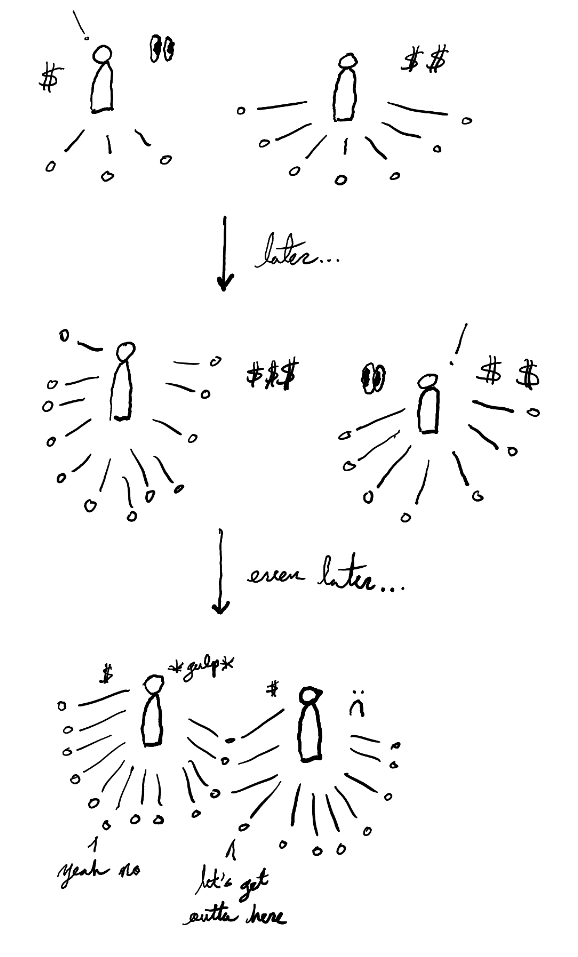 !
$
$$
later...
$$$
!
$ $
even later...
$
*gulp*
$
:(
yeah no
let's get
outta here